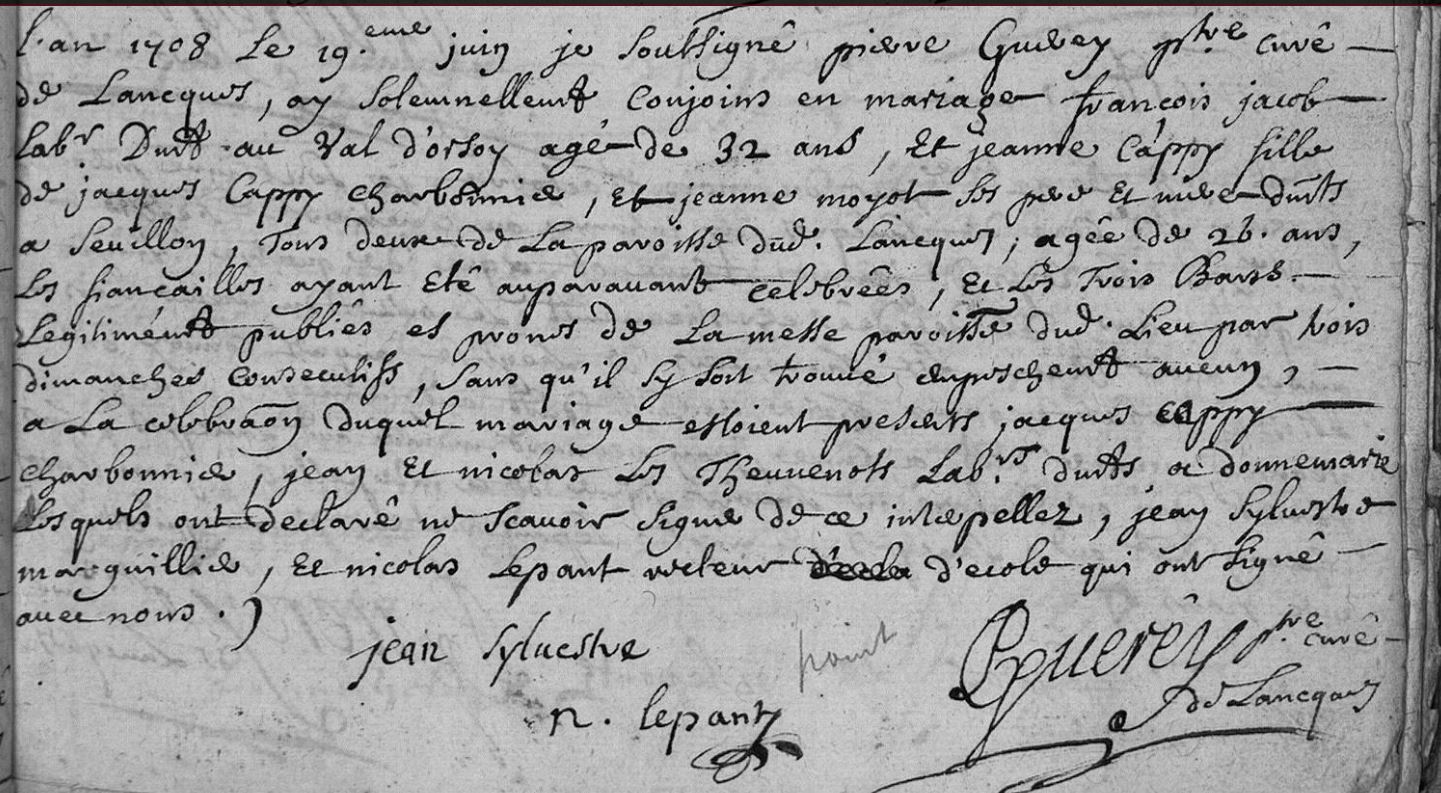 L'an 1708 Le 19.eme juin je soubsignê pierre Guerey ptre curê
de Lancques, ay solemnellemt conjoins en mariage francois jacob
labr. Dmt au Val d'orsoy agé de 32 ans, Et jeanne Cappy fille
de jacques Cappy charbonnier, et jeanne moyot ses pere Et mere dmts
a Seuillon, Tous deux de La paroisse dud. Lancques, agêe de 26. ans,
Les fiancailles ayant etê auparauant celebrêes, Et les Trois Bans
Legitimémt publiés es prones de La messe paroisse dud. Lieu par trois
dimanches consecutifs, sans qu'il sy soit trouué empeschemt aucun,
a La celebraon duquel mariage estoient presents jacques cappy
charbonnier, jean Et nicolas Les Theuuenots Labrs. dmts a donnemarie
Lesquels ont declarê ne scauoir signer de ce interpellez, jean Syluestre
marguillier, Et nicolas Lepant recteur d'ecole qui ont signê
auec nous.
jean Syluestre
point
PGuerêy ptre curê
de Lancques
n. lepant